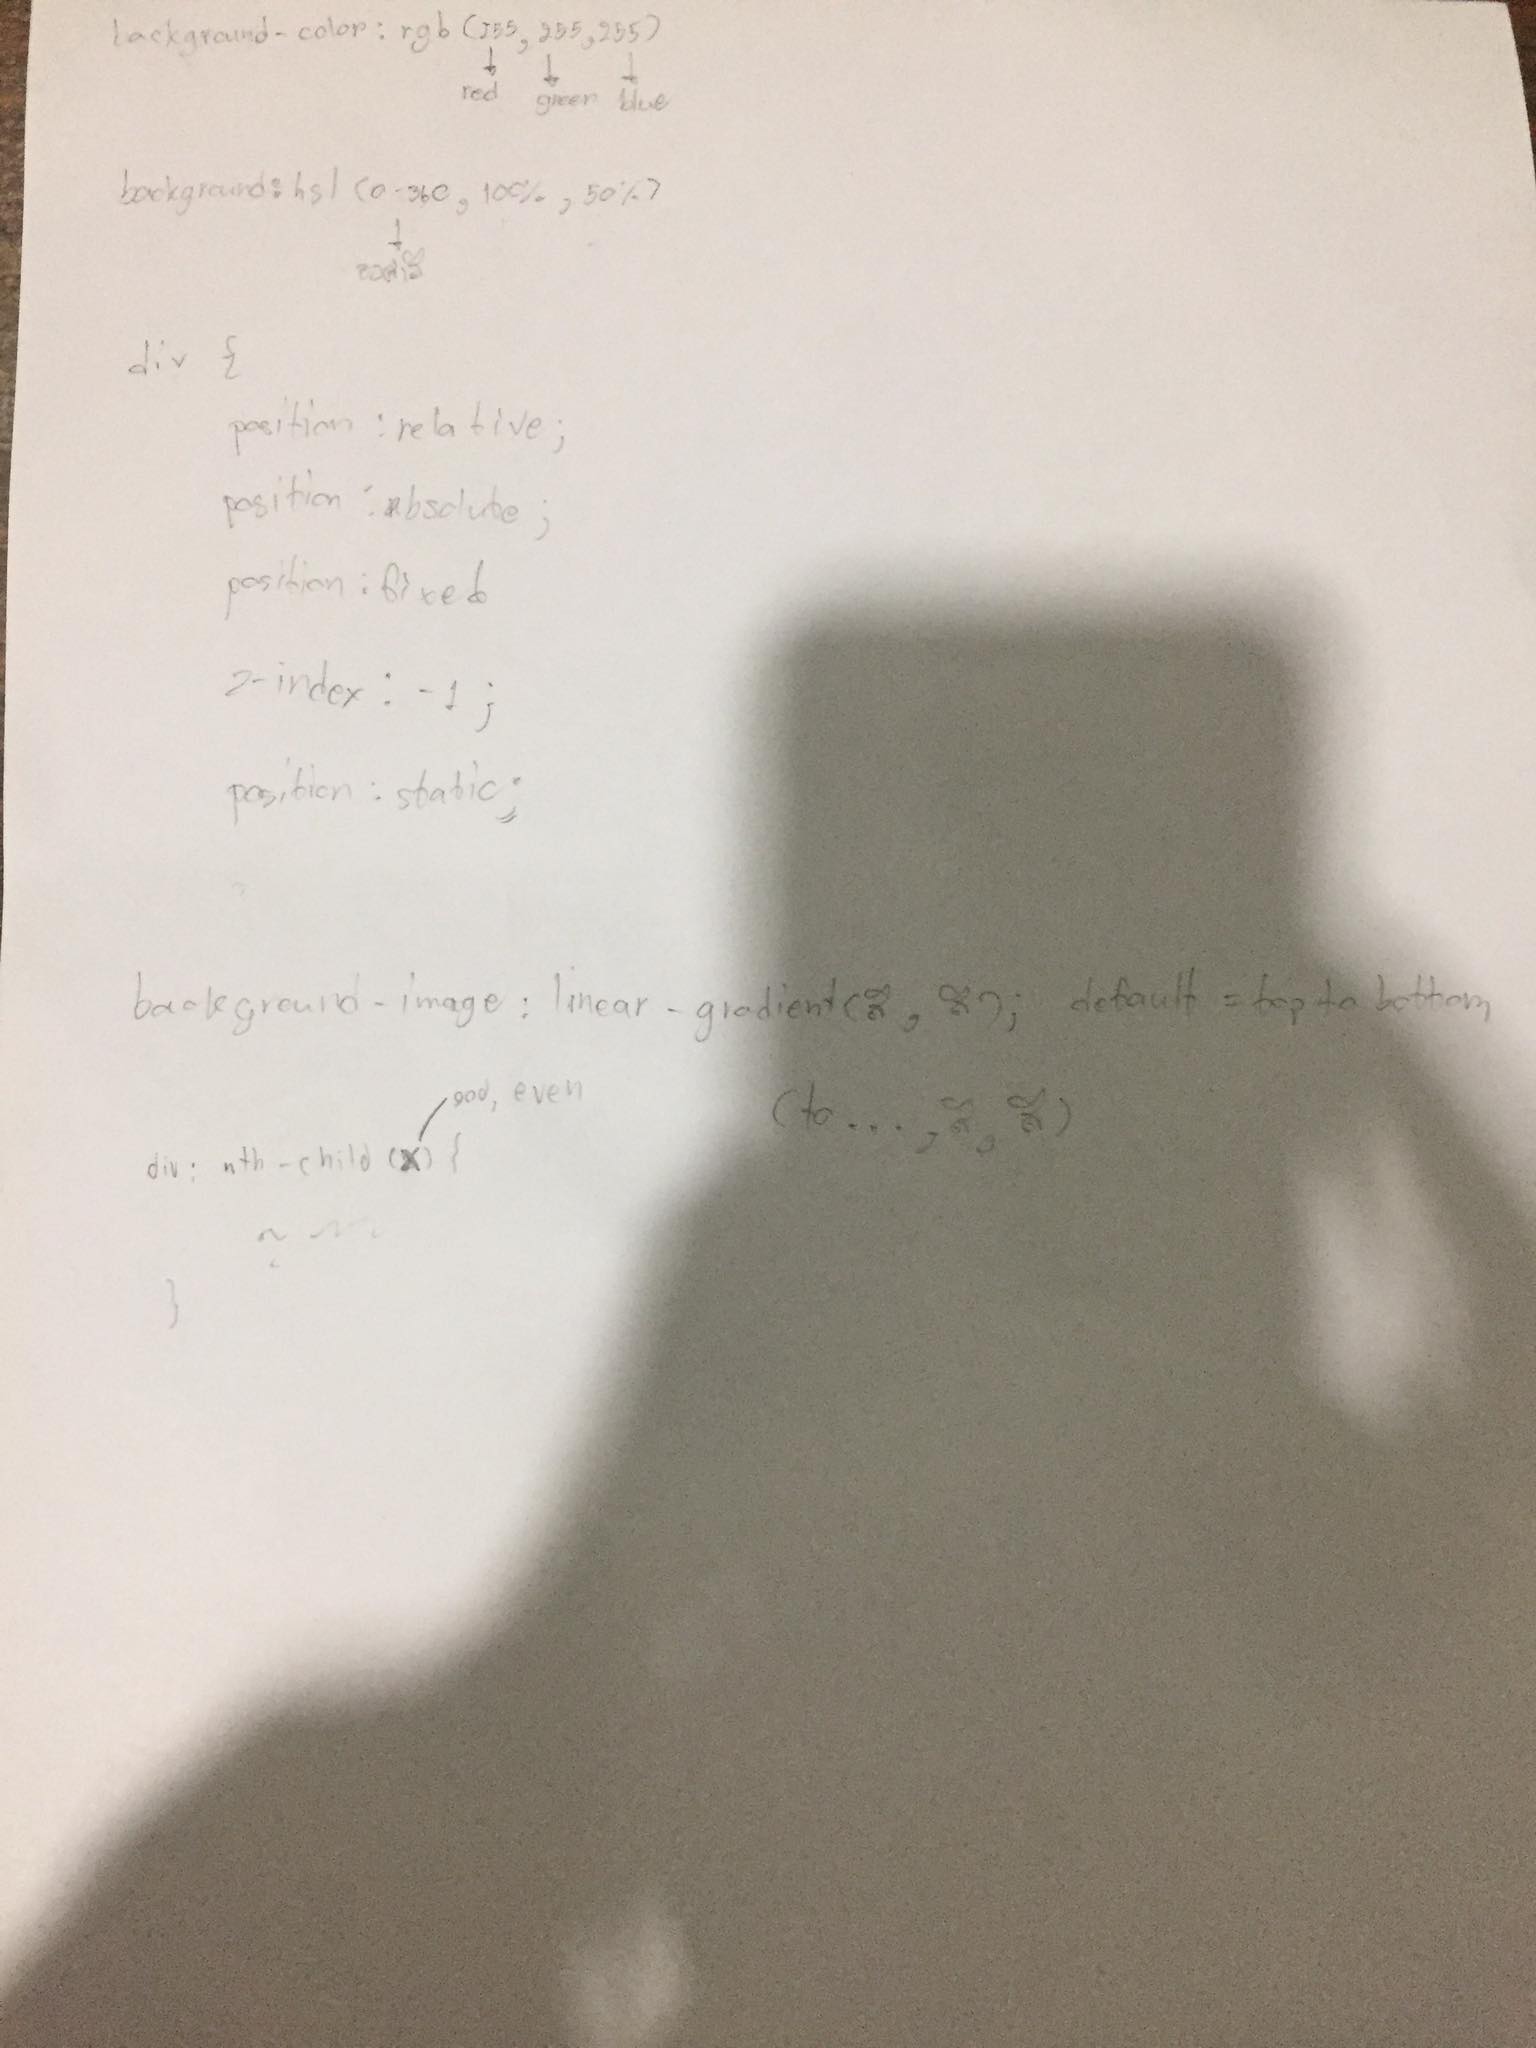 background-color: rgb (255, 255, 255)
red green blue
background: hsl (0-360, 100%, 50%)
องศาสี
div {
position : relative;
position : absolute;
position : fixed
z-index : -1 ;
position : static;
background-image : linear-gradient(สี, สี); default = top to bottom
(to ..., สี, สี)
odd, even
div: nth-child (X) {
}